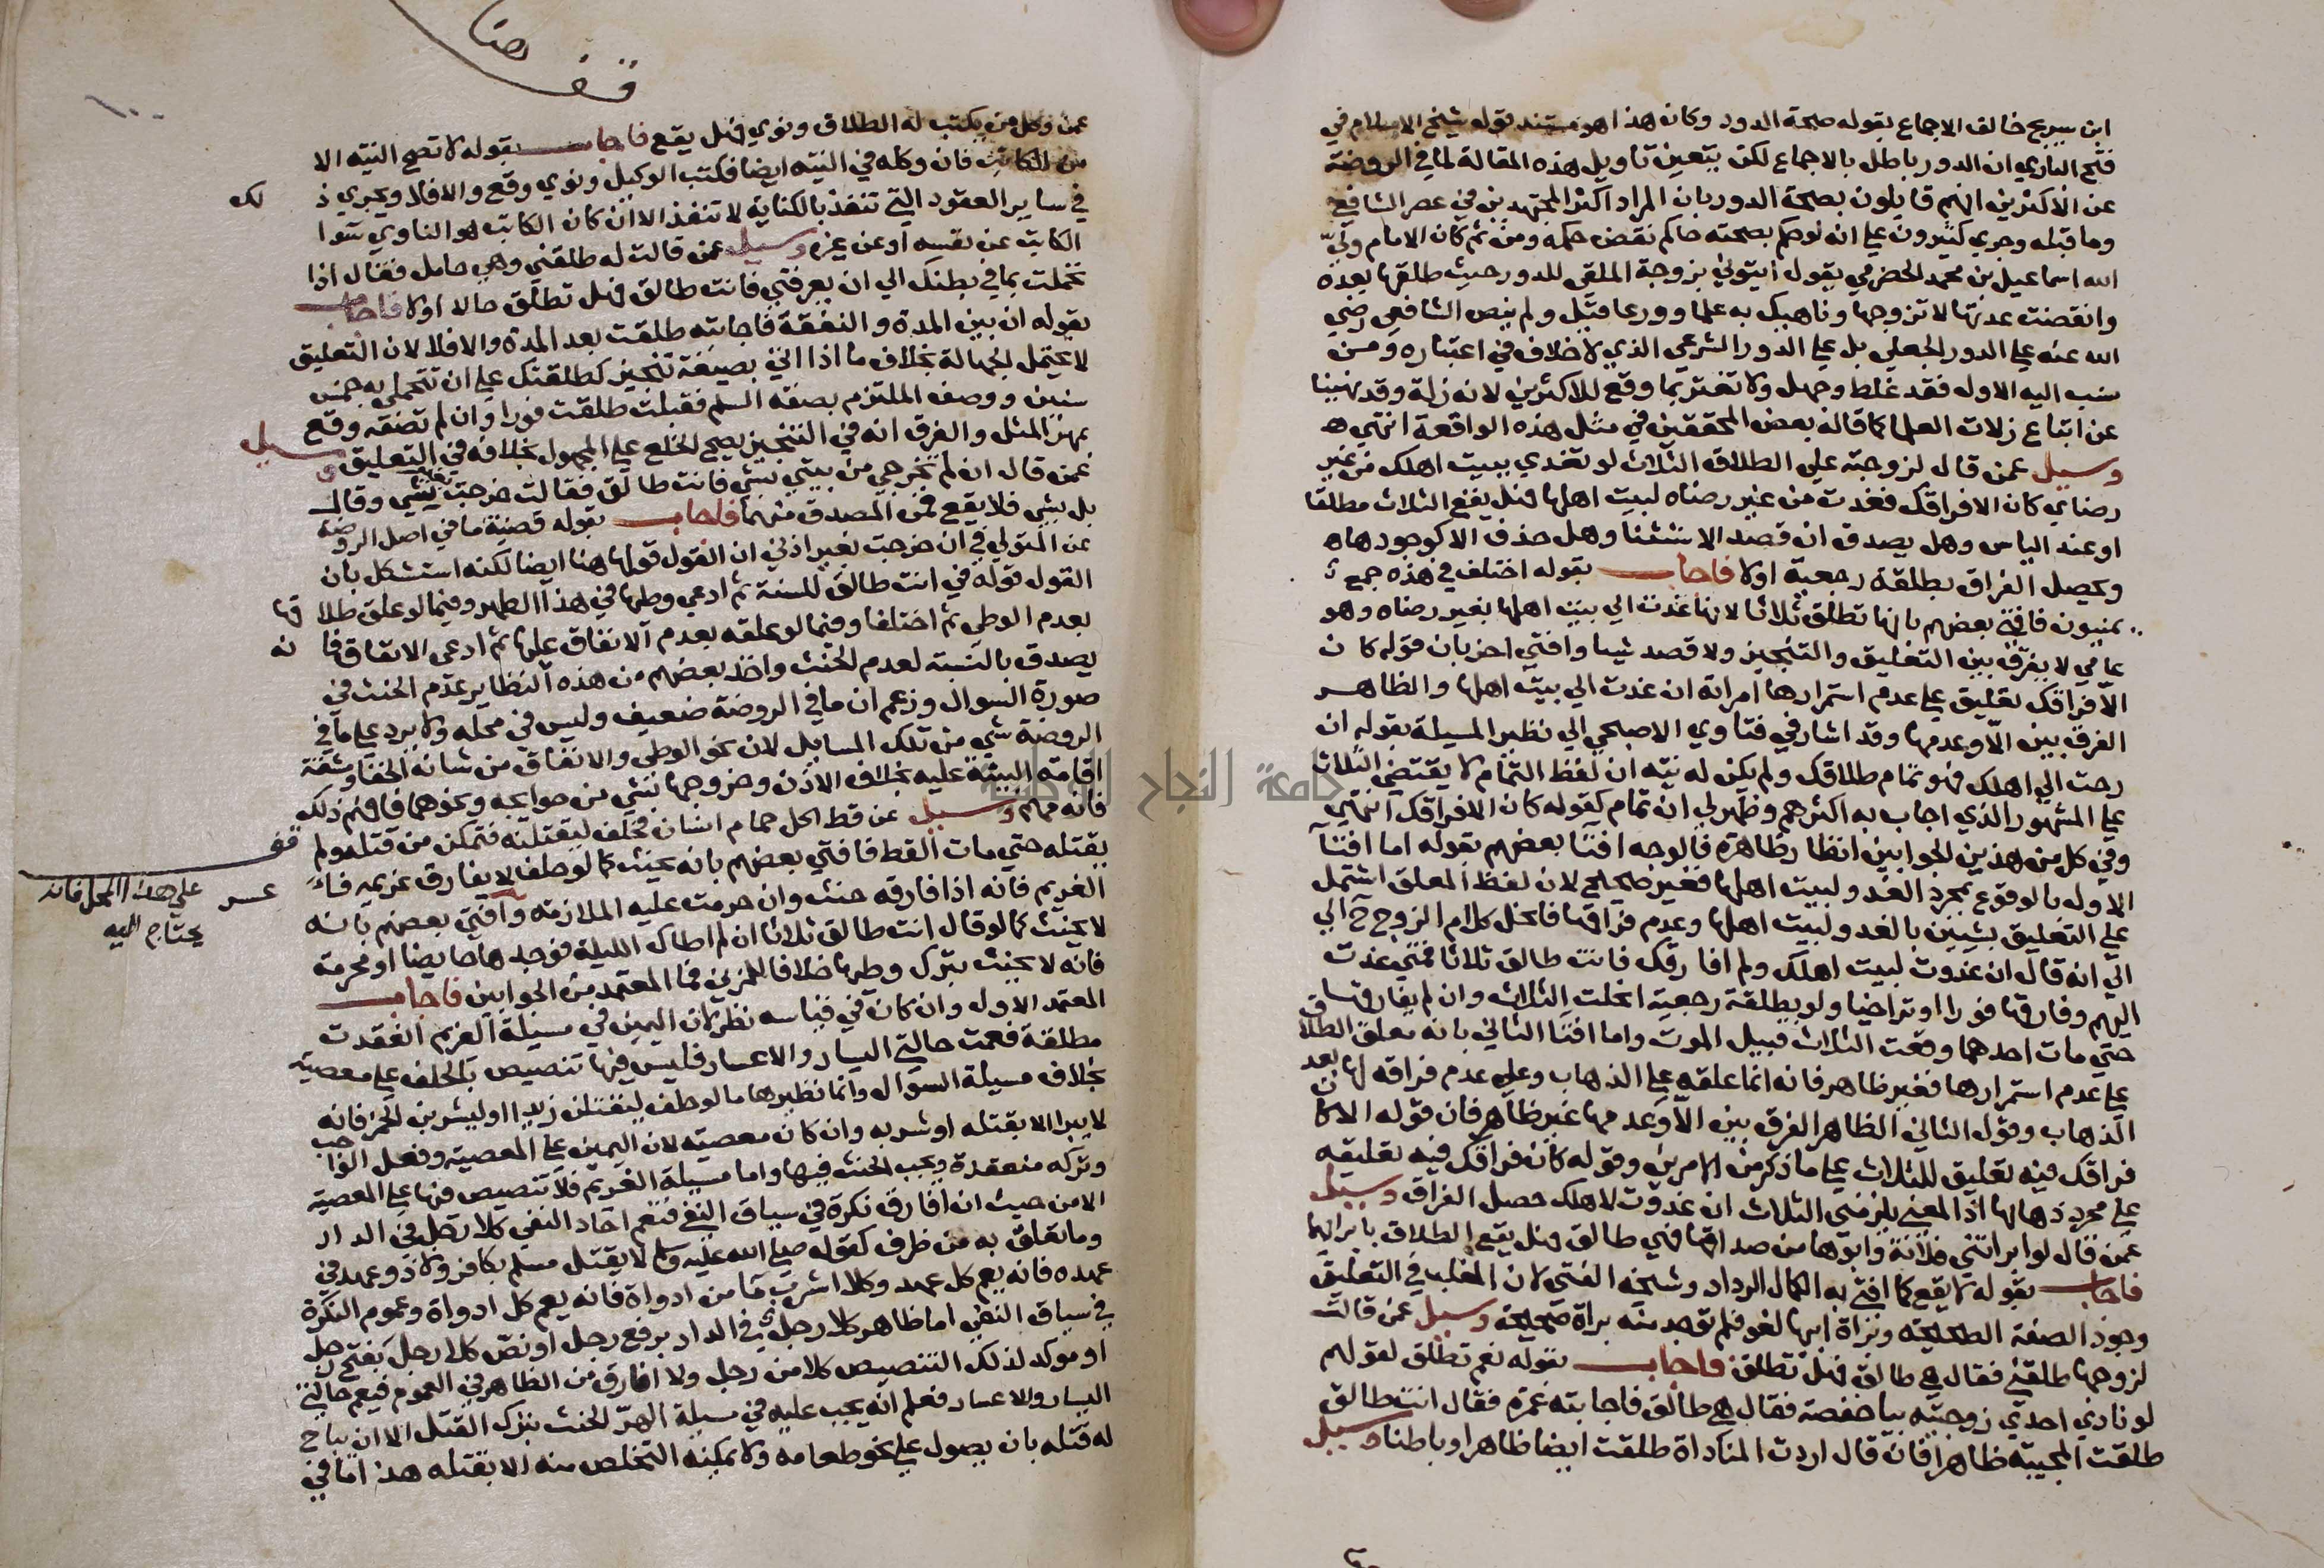 ابن سريج خالف الاجماع بقوله صحة الدور وكان هذا هو مستند قوله شيخ الاسلام في
فتح الباري ان الدور باطل بالاجماع لكن يتعين تاويل هذه المقالة لما في الروضة
عن الاكثرين انهم قايلون بصحة الدور بان المراد اكثر المجتهدين في عصر الشافعي
وما قبله وجري كثيرون علي انه لو حكم بصحته حاكم نقض حكمه ومن ثم كان الامام ولي
الله اسماعيل بن محمد الحضرمي يقول ايتوني بزوجة الملقي للدور حيث طلقها بعده
وانقضت عدتها لا تزوجها وناهيك به علما وورعا قيل ولم ينص الشافعي رضي
الله عنه علي الدور الجعلي بل علي الدور الشرعي الذي لا خلاف في اعتباره ومن
نسب اليه الاول فقد غلط وجهل ولا تغتر بما وقع للاكثرين لانه زلة وقد نهينا
عن اتباع زلات العلما كما قاله بعض المحققين في مثل هذه الواقعة انتهي ه
وسيل عمن قال لزوجته علي الطلاق الثلاث لو تغدي ببيت اهلك من غير
رضاي كان الا فراقك فغدت من غير رضاه لبيت اهلها فهل يقع الثلاث مطلقا
او عند الياس وهل يصدق ان قصد الاستثنا وهل حذف الا كوجودها ه
ويحصل الفراق بطلقة رجعية اولا فاجاب بقوله اختلف في هذه جمع
يمنيون فافتي بعضهم بانها تطلق ثلاثا لانها غدت الي بيت اهلها بغير رضاه وهو
عامي لا يفرق بين التعليق والتنجيز ولا قصد شيا وافتي اخر بان قوله كان
الا فراقك تعليق علي عدم استمرارها امراته ان غدت الي بيت اهلها والظاهر
الفرق بين الا وعدمها وقد اشار في فتاوي الاصبحي الي نظير المسيلة بقوله ان
رحت الي اهلك فهو تمام طلاقك ولم يكن له نية ان لفظ التمام لا يقتضي الثلاث
علي المشهور الذي اجاب به اكثرهم وظهر لي ان تمام كقوله كان الا فراقك انتهي
وفي كل من هذين الجوابين انظار ظاهرة فالوجه افتا بعضهم بقوله اما افتا
الاول بالوقوع بمجرد الغدو لبيت اهلها فغير صحيح لان لفظ المعلق اشتمل
علي التعليق بشيين بالغدو لبيت اهلها وعدم فراقها فانحل كلام الزوج ح الي
الي انه قال ان غدوت لبيت اهلك ولم افارقك فانت طالق ثلاثا فمتي غدت
اليهم وفارقها فورا او تراخيا ولو بطلقة رجعية انحلت الثلاث وان لم يفارقها
حتي مات احدهما وقعت الثلاث قبيل الموت واما افتا الثاني بانه معلق الطلاق
علي عدم استمرارها فغير ظاهر فانه انما علقه علي الذهاب وعلي عدم فراقه لها بعد
الذهاب وقول الثاني الظاهر الفرق بين الا وعدمها غير ظاهر فان قوله الا كان
فراقك فيه تعليق للثلاث علي ما ذكر من الامرين وقوله كان فراقك فيه تعليقه
علي مجرد ذهابها اذ المعني يلزمني الثلاث ان غدوت لاهلك حصل الفراق وسيل
عمن قال لو ابراتني فلانة وابوها من صداقها فهي طالق فهل يقع الطلاق بابرائهما
فاجاب بقوله لا يقع كما افتي به الكمال الرداد وشيخه الفتي لان المغلب في التعليق
وجود الصفة الصحيحة وبراة ابيها لغو فلم توجد منه براة صحيحة وسيل عمن قالت
لزوجها طلقني فقال هي طالق فهل تطلق فاجاب بقوله نعم تطلق لقولهم
لو نادي احدي زوجتيه بيا حفصة فقال هي طالق فاجابته عمرة فقال انت طالق
طلقت المجيبة ظاهرا فان قال اردت المناداة طلقت ايضا ظاهرا وباطنا وسيل
قف هنا
عمن وكل من يكتب له الطلاق ونوي فهل يقع فاجاب بقوله لا تصح النية الا
من الكاتب فان وكله في النية ايضا فكتب الوكيل ونوي وقع والا فلا ويجري ذ لك
في ساير العقود التي تنفذ بالكناية لا تنفذ الا ان كان الكاتب هو الناوي سوا
الكاتب عن نفسه او عن غيره وسيل عمن قالت له طلقني وهي حامل فقال اذا
تحملت بما في بطنك الي ان يعرفني فانت طالق فهل تطلق حالا اولا فاجاب
بقوله ان بين المدة والنفقة فاجابته طلقت بعد المدة والا فلا لان التعليق
لا يحتمل الجهالة بخلاف ما اذا اتي بصيغة تنجيز كطلقتك علي ان تتحملي به خمس
سنين ووصف الملتزم بصفة السلم فقبلت طلقت فورا وان لم تصفه وقع
بمهر المثل والفرق انه في التنجيز يصح الخلع علي المجهول بخلافه في التعليق وسيل
عمن قال ان لم تخرجي من بيتي بشي فانت طالق فقالت خرجت بغير شي وقال
بل بشي فلا يقع فمن المصدق منهما فاجاب بقوله قضية ما في اصل الروضة
عن المتولي في ان خرجت بغير اذني ان القول قولها هنا ايضا لكنه استشكل بان
القول قوله في انت طالق للسنة ثم ادعي وطيها في هذا الطهر وفيما لو علق طلاقها
بعدم الوطي ثم اختلفا وفيما لو علقه بعدم الانفاق عليها ثم ادعي الانفاق فانه
يصدق بالنسبة لعدم الحنث واخذ بعضهم من هذه النظاير عدم الحنث في
صورة السوال وزعم ان ما في الروضة ضعيف وليس في محله ولا يرد علي ما في
الروضة شي من تلك المسايل لان نحو الوطي والانفاق من شانه الخفا ومشقة
اقامة البينة عليه بخلاف الاذن وخروجها بشي من حوايجه ونحوهما فافهم ذلك
فانه مهم وسيل عن قط اكل حمام انسان فحلف ليقتلنه فتمكن من قتله ولم
يقتله حتي مات القط فافتي بعضهم بانه يحنث كما لو حلف لا يفارق غريمه فاعسر
الغريم فانه اذا فارقه حنث وان حرمت عليه الملازمة وافتي بعضهم بانه
لا يحنث كما لو قال انت طالق ثلاثا ان لم اطاك الليلة فوجدها حايضا او محرمة
فانه لا يحنث بترك وطيها خلافا للمزني فما المعتمد من الجوابين فاجاب
المعتمد الاول وان كان في قياسه نظر لان اليمين في مسيلة الغريم انعقدت
مطلقة فعمت حالتي اليسار والاعسار فليس فيها تنصيص بالحلف علي معصية
بخلاف مسيلة السوال وانما نظيرها ما لو حلف ليقتلن زيدا او ليشربن الخمر فانه
لا يبرا الا بقتله او شربه وان كان معصية لان اليمين علي المعصية وفعل الواجب
وتركه منعقدة ويجب الحنث فيها واما مسيلة الغريم فلا تنصيص فيها علي المعصية
الا من حيث ان افارق نكرة في سياق النفي فتعم احاد النفي كلا رجل في الدار
وما تعلق به من ظرف كقوله صلي الله عليه وسلم لا يقتل مسلم بكافر ولا ذو عهد في
عهده فانه يعم كل عهد وكلا اشرب ما من ادواة فانه يعم كل ادواة وعموم النكرة
في سياق النفي اما ظاهر كلا رجل في الدار برفع رجل او نص كلا رجل بفتح رجل
او موكد لذلك التنصيص كلا من رجل ولا افارق من الظاهر في العموم فيعم حالتي
اليسار والاعسار فعلم انه يجب عليه في مسيلة الهر الحنث بترك القتل الا ان يباح
له قتله بان يصول علي نحو طعامه ولا يمكنه التخلص منه الا بقتله هذا اما في
قف
علي هذا المحل فانه
يحتاج اليه
جامعة النجاح الوطنية